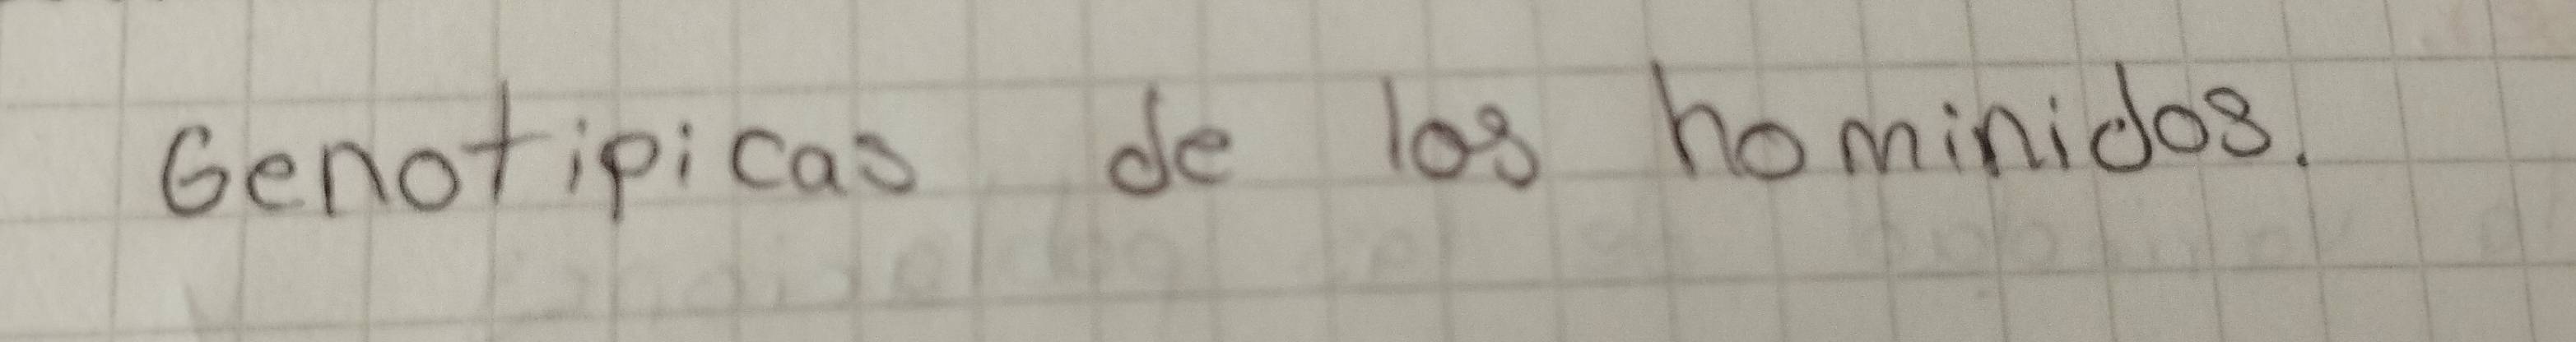 Genotipicas de los hominidos.